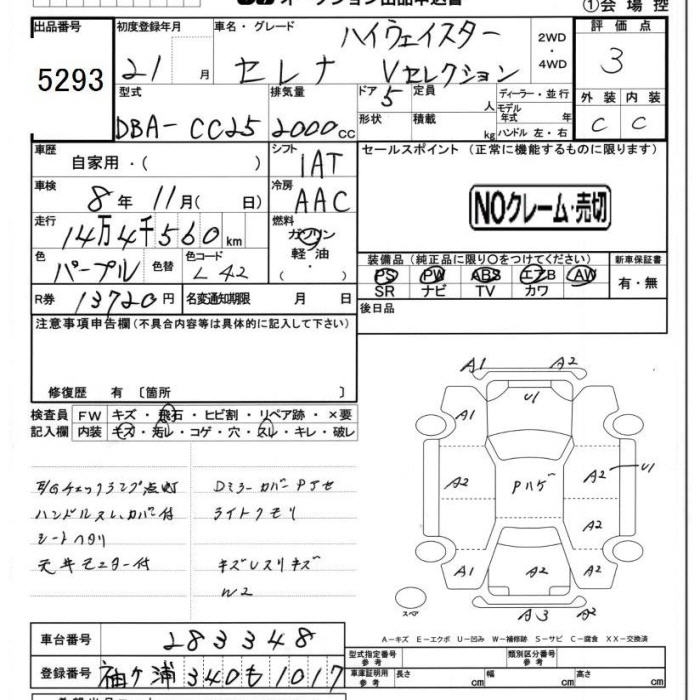 オークション出品申込書
①会場控
出品番号 5293
初度登録年月 21 月
車名・グレード ハイウェイスター
セレナ Vセレクション
2WD・4WD
評価点 3
外装 内装
C C
型式 DBA-CC25
排気量 2000cc
ドア 5 定員 人
形状 積載 kg
ディーラー・並行
モデル年式 年
ハンドル 左・右
車歴 自家用・( )
シフト IAT
車検 8年11月( 日)
冷房 AAC
走行 14万4千560km
燃料 ガソリン 軽油 ( ・ )
色 パープル 色替 色コード L42
R券 13720円 名変通知期限 月 日
セールスポイント (正常に機能するものに限ります)
NOクレーム・売切
装備品(純正品に限り○をつけてください) 新車保証書
PS PW ABS エアB AW 有・無
SR ナビ TV カワ
後日品
注意事項申告欄(不具合内容等は具体的に記入して下さい)
修復歴 有〔箇所 〕
検査員記入欄 FW キズ・飛石・ヒビ割・リペア跡・×要
内装 キズ・汚レ・コゲ・穴・スレ・キレ・破レ
E/Gチェックランプ点灯
ハンドルスレ、カバー付
シートヘタリ
天井モニター付
Dミラーカバー
ライトクモリ
キズUスリキズ
W2
A1 A2
A1 U1
A2 Pハゲ A2 U1
A2
A1 A2 A2
A3 A2
スペア
A-キズ E-エクボ U-凹み W-補修跡 S-サビ C-腐食 XX-交換済
車台番号 283348
登録番号 袖ケ浦 340も1017
型式指定番号 参考 類別区分番号 参考
車庫証明用 参考 長さ cm 幅 cm 高さ cm